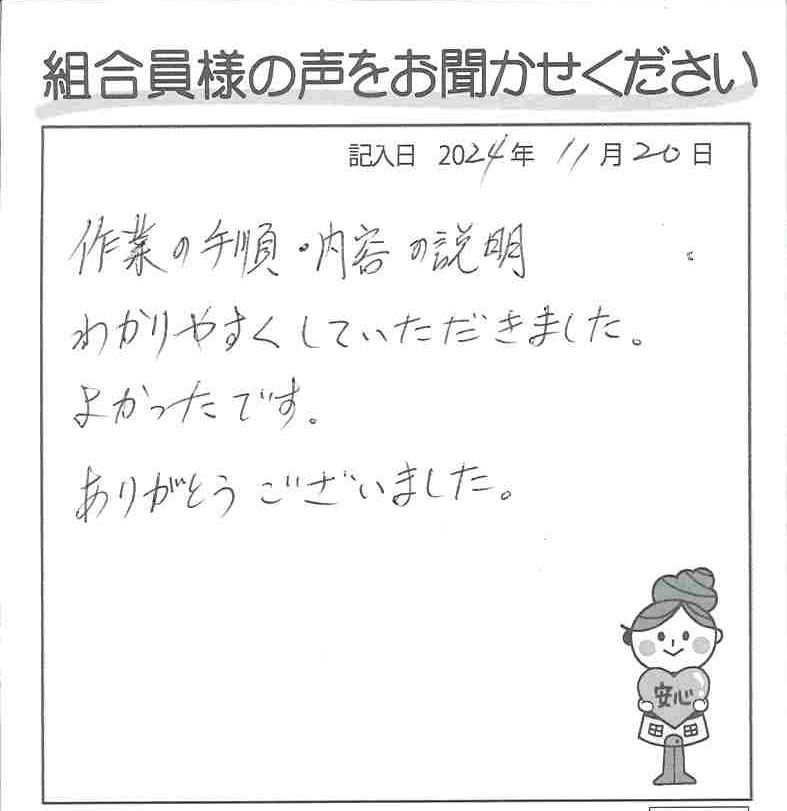 組合員様の声をお聞かせください
記入日 2024年 11月20日
作業の手順・内容の説明
わかりやすくしていただきました。
よかったです。
ありがとうございました。
安心